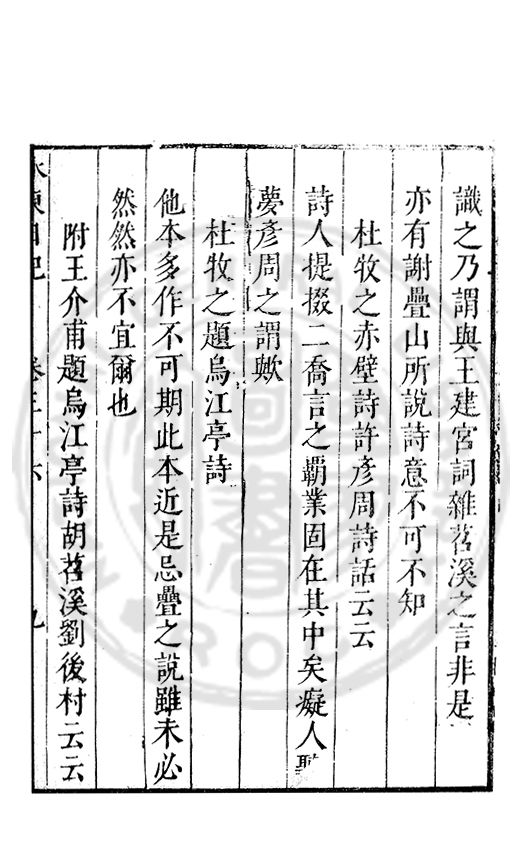 識之乃謂與王建宮詞雜苕溪之言非是
亦有謝疊山所說詩意不可不知
杜牧之赤壁詩許彥周詩話云云
詩人提掇二喬言之覇業固在其中矣癡人聽
夢彥周之謂歟
杜牧之題烏江亭詩
他本多作不可期此本近是忌疊之說雖未必
然然亦不宜爾也
附王介甫題烏江亭詩胡苕溪劉後村云云
水東日記 卷三十六 九